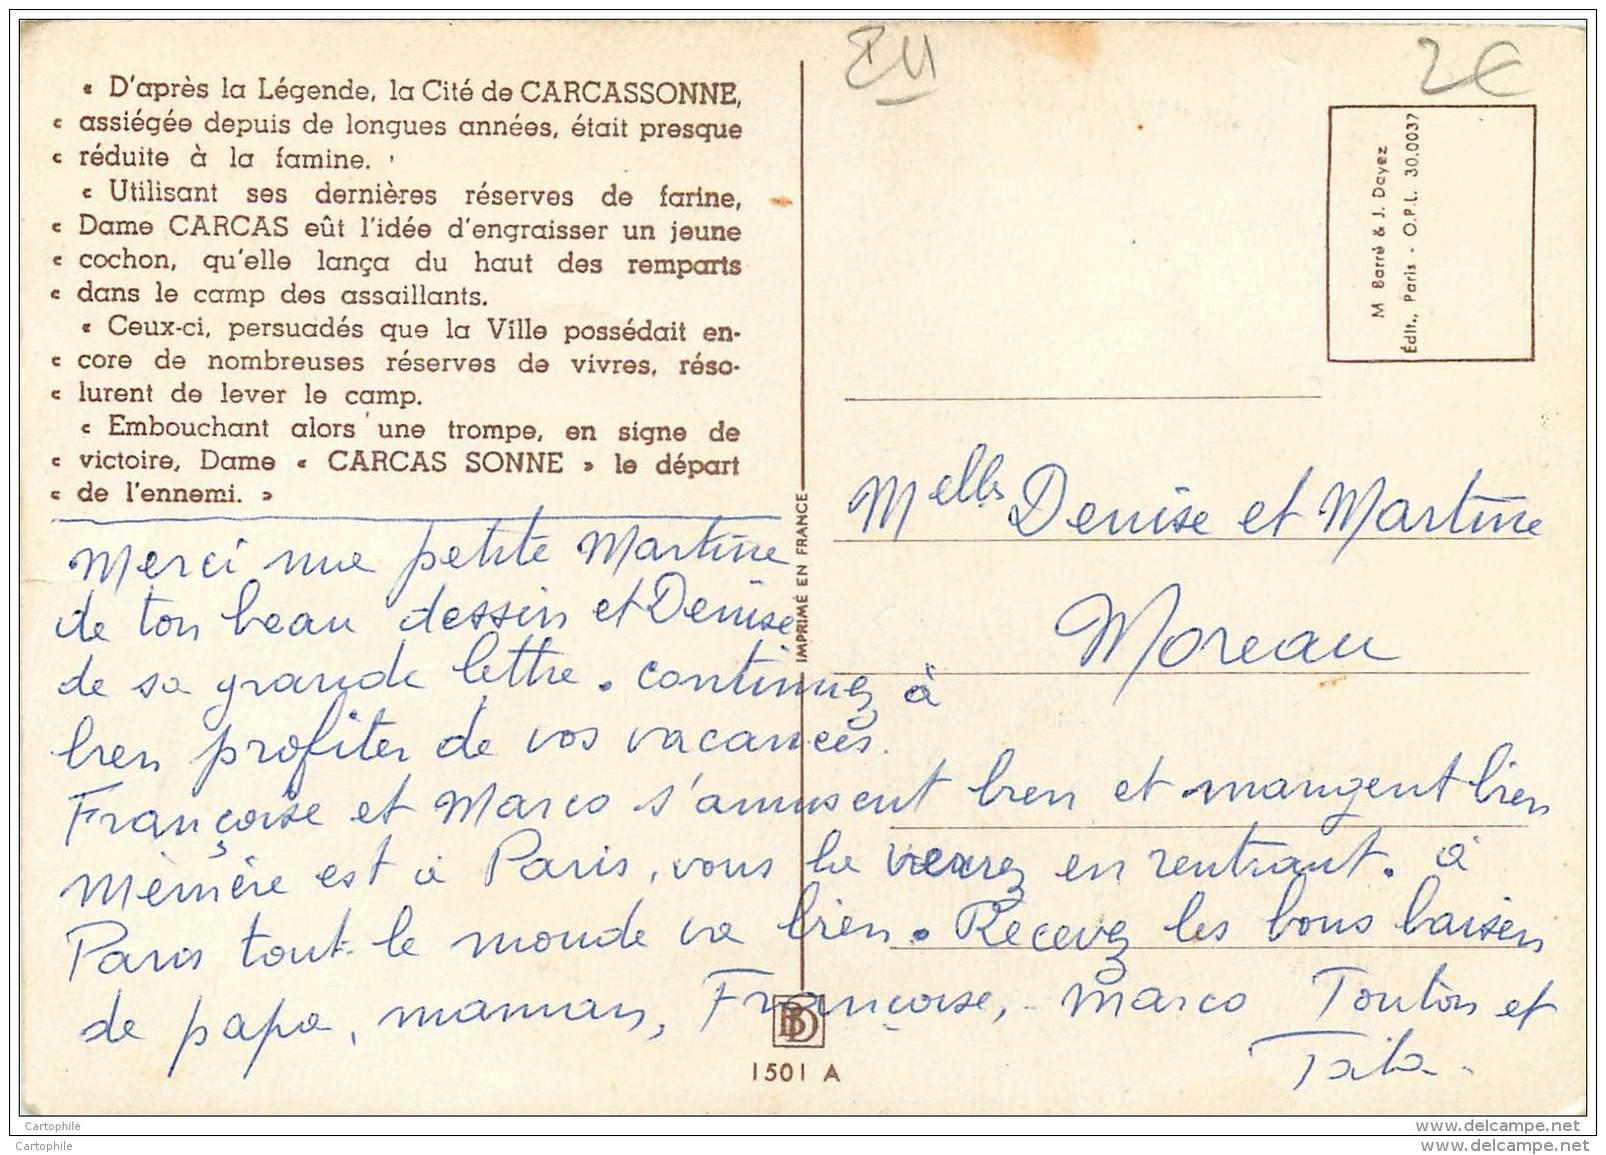 « D'après la Légende, la Cité de CARCASSONNE,
« assiégée depuis de longues années, était presque
« réduite à la famine.
« Utilisant ses dernières réserves de farine,
« Dame CARCAS eût l'idée d'engraisser un jeune
« cochon, qu'elle lança du haut des remparts
« dans le camp des assaillants.
« Ceux-ci, persuadés que la Ville possédait en-
« core de nombreuses réserves de vivres, réso-
« lurent de lever le camp.
« Embouchant alors une trompe, en signe de
« victoire, Dame « CARCAS SONNE » le départ
« de l'ennemi. »
Merci ma petite Martine
de ton beau dessin et Denise
de sa grande lettre. continuez à
bien profiter de vos vacances.
Françoise et Marco s'amusent bien et mangent bien
Mémère est à Paris, vous la verrez en rentrant. à
Paris tout le monde va bien. Recevez les bons baisers
de papa, maman, Françoise, Marco Tonton et
Tata.
IMPRIMÉ EN FRANCE
BD
1501 A
2€
M Barré & J. Dayez
Édit., Paris - O.P.L. 30.0037
Melles Denise et Martine
Moreau
Cartophile
www.delcampe.net
Cartophile
www.delcampe.net